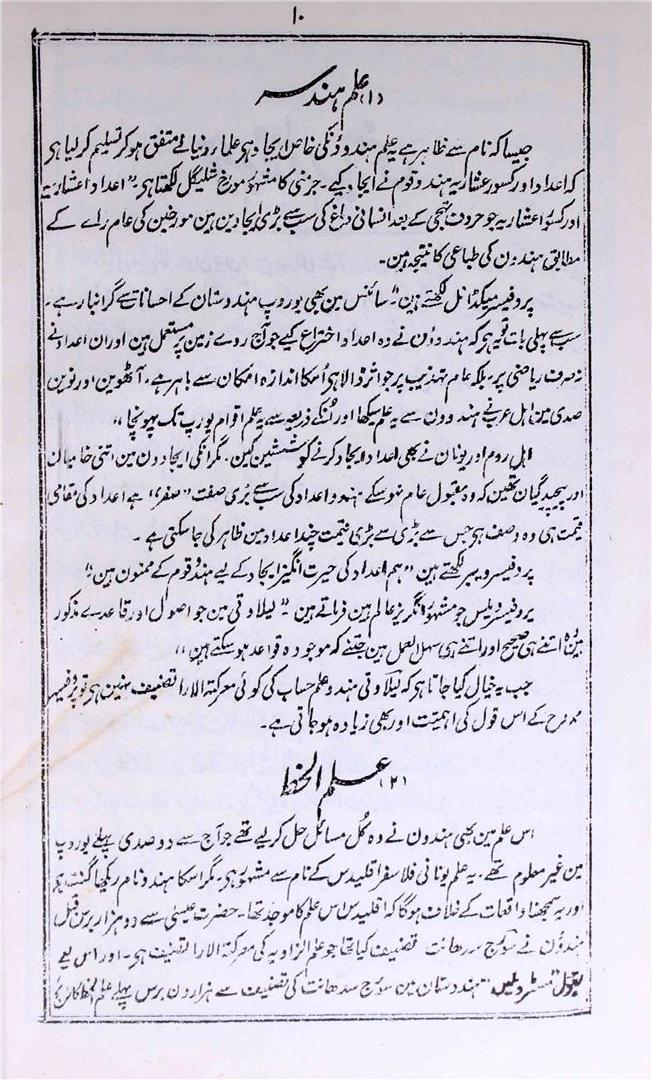 ۱۰
(۱) علم ہندسہ
جیسا کہ نام سے ظاہر ہے یہ علم ہندوؤنکی خاص ایجاد ہی علماء دنیا نے متفق ہو کر تسلیم کر لیا ہی
کہ اعداد اور کسور عشاریہ ہندو قوم نے ایجاد کیے۔ جرمنی کا مشہور مورخ شلیگل لکھتا ہی۔ "اعداد اعشاریہ
اور کسور اعشاریہ جو حروف تہجی کے بعد انسانی دماغ کی سب سے بڑی ایجادین ہین مورخین کی عام راے کے
مطابق ہندون کی طباعی کا نتیجہ ہین۔
پروفیسر میکڈانل لکھتے ہین "سائنس مین بھی یوروپ ہندوستان کے احسانات سے گرانبار ہے۔
سب سے پہلی بات تو یہ ہی کہ ہندوؤن نے وہ اعداد اختراع کیے جو آج روے زمین پر مستعمل ہین اور ان اعداد نے
نہ صرف ریاضی پر بلکہ عام تہذیب پر جو اثر ڈالا ہی اُسکا اندازہ امکان سے باہر ہے۔ آٹھوین اور نوین
صدی مین اہل عرب نے ہندوون سے یہ علم سیکھا اور اُنکے ذریعہ سے یہ علم اقوام یورپ تک پہونچا"
اہل روم اور یونان نے بھی اعداد ایجاد کرنے کی کوششین کین۔ مگر انکی ایجادون مین اتنی خامیان
اور پیچیدگیان تھین کہ وہ مقبول عام نہوسکے ہندو اعداد کی سب سے بڑی صفت "صفر" ہے اعداد کی مقامی
قیمت ہی وہ وصف ہی جس سے بڑی سے بڑی قیمت چند اعداد مین ظاہر کی جا سکتی ہے۔
پروفیسر ویبر لکھتے ہین "ہم اعداد کی حیرت انگیز ایجاد کے لیے ہندو قوم کے ممنون ہین"
پروفیسر ویلیس جو مشہور انگریز عالم ہین فرماتے ہین۔ "لیلاوتی مین جو اصول اور قاعدے مذکور
ہین وہ اتنے ہی صحیح اور اتنے ہی سہل العمل ہین جتنے کہ موجودہ قواعد ہو سکتے ہین"
جب یہ خیال کیا جاتا ہی کہ لیلاوتی ہندو علم حساب کی کوئی معرکتہ الآرا تصنیف نہین ہی تو پروفیسر
ممدوح کے اس قول کی اہمیت اور بھی زیادہ ہو جاتی ہے۔
(۲) علم الخط
اس علم مین بھی ہندون نے وہ کُل مسائل حل کر لیے تھے جو آج سے دو صدی پہلے یوروپ
مین غیر معلوم تھے۔ یہ علم یونانی فلاسفر اقلیدس کے نام سے مشہور ہی۔ مگر اسکا ہندو نام ریکھا گنت ہی
اور یہ سمجھنا واقعات کے خلاف ہوگا کہ اقلیدس اس علم کا موجد تھا۔ حضرت عیسیٰ سے دو ہزار برس قبل
ہندوؤن نے سورج سدھانت تصنیف کیا تھا جو علم الزاویہ کی معرکتہ الآرا تصنیف ہی۔ اور اس لیے
بقول مسٹر ویلیس "ہندوستان مین سورج سدھانت کی تصنیف سے ہزارون برس پہلے علم الخط کا